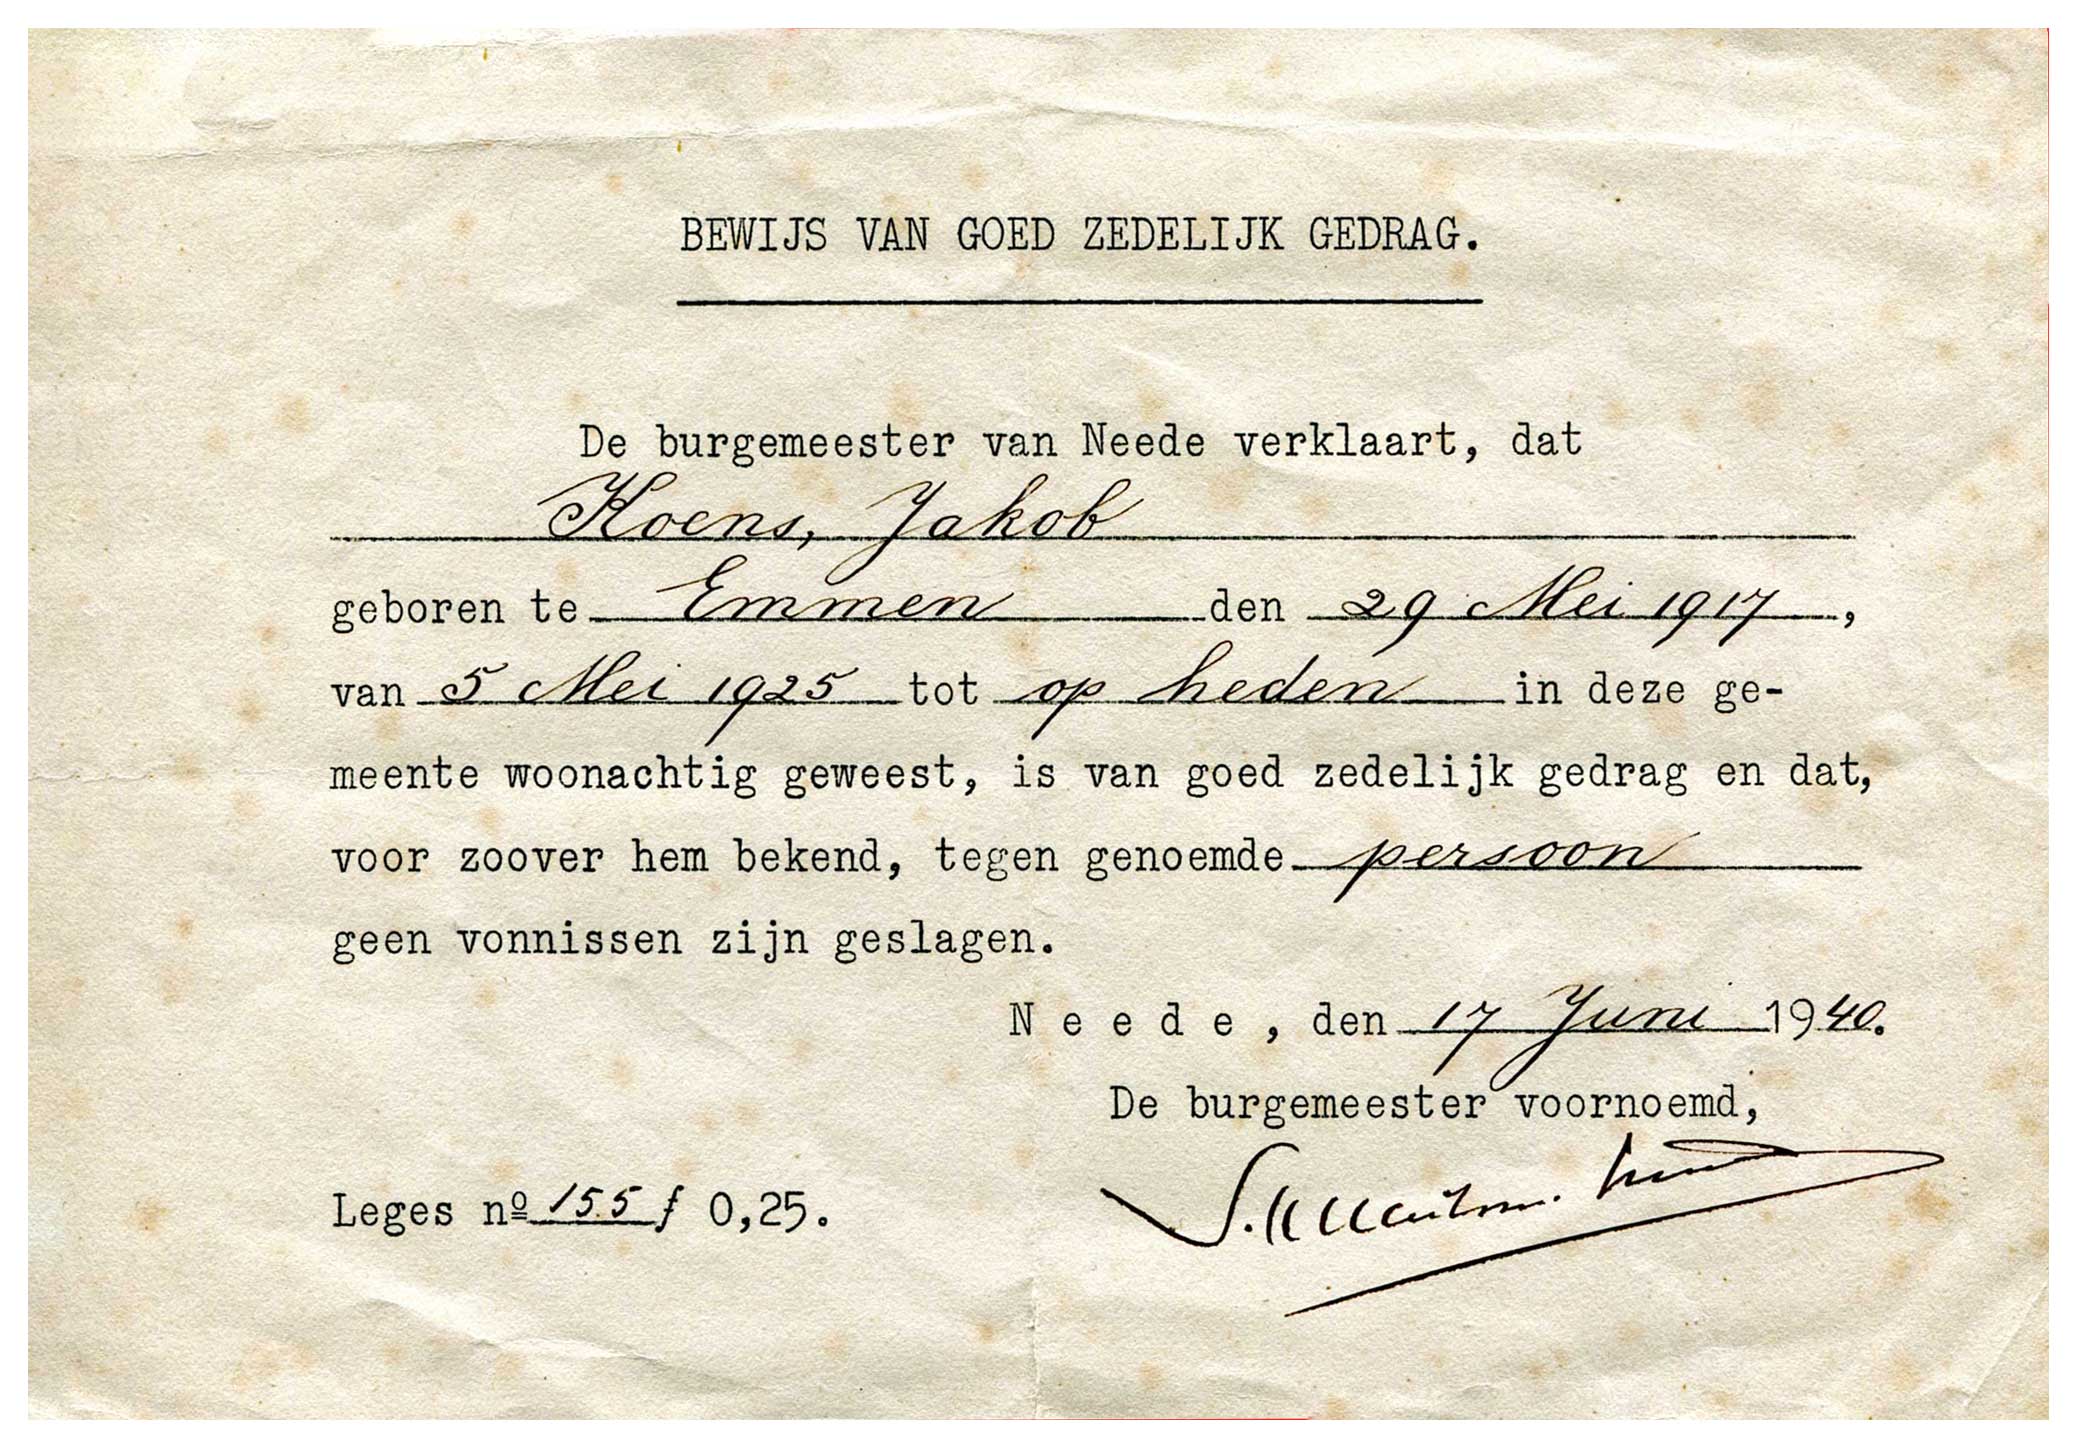 BEWIJS VAN GOED ZEDELIJK GEDRAG.
De burgemeester van Neede verklaart, dat
Koens, Jakob
geboren te Emmen den 29 Mei 1917,
van 5 Mei 1925 tot op heden in deze ge-
meente woonachtig geweest, is van goed zedelijk gedrag en dat,
voor zoover hem bekend, tegen genoemde persoon
geen vonnissen zijn geslagen.
Neede, den 17 Juni 1940.
De burgemeester voornoemd,
Leges nº 155 ƒ 0,25.